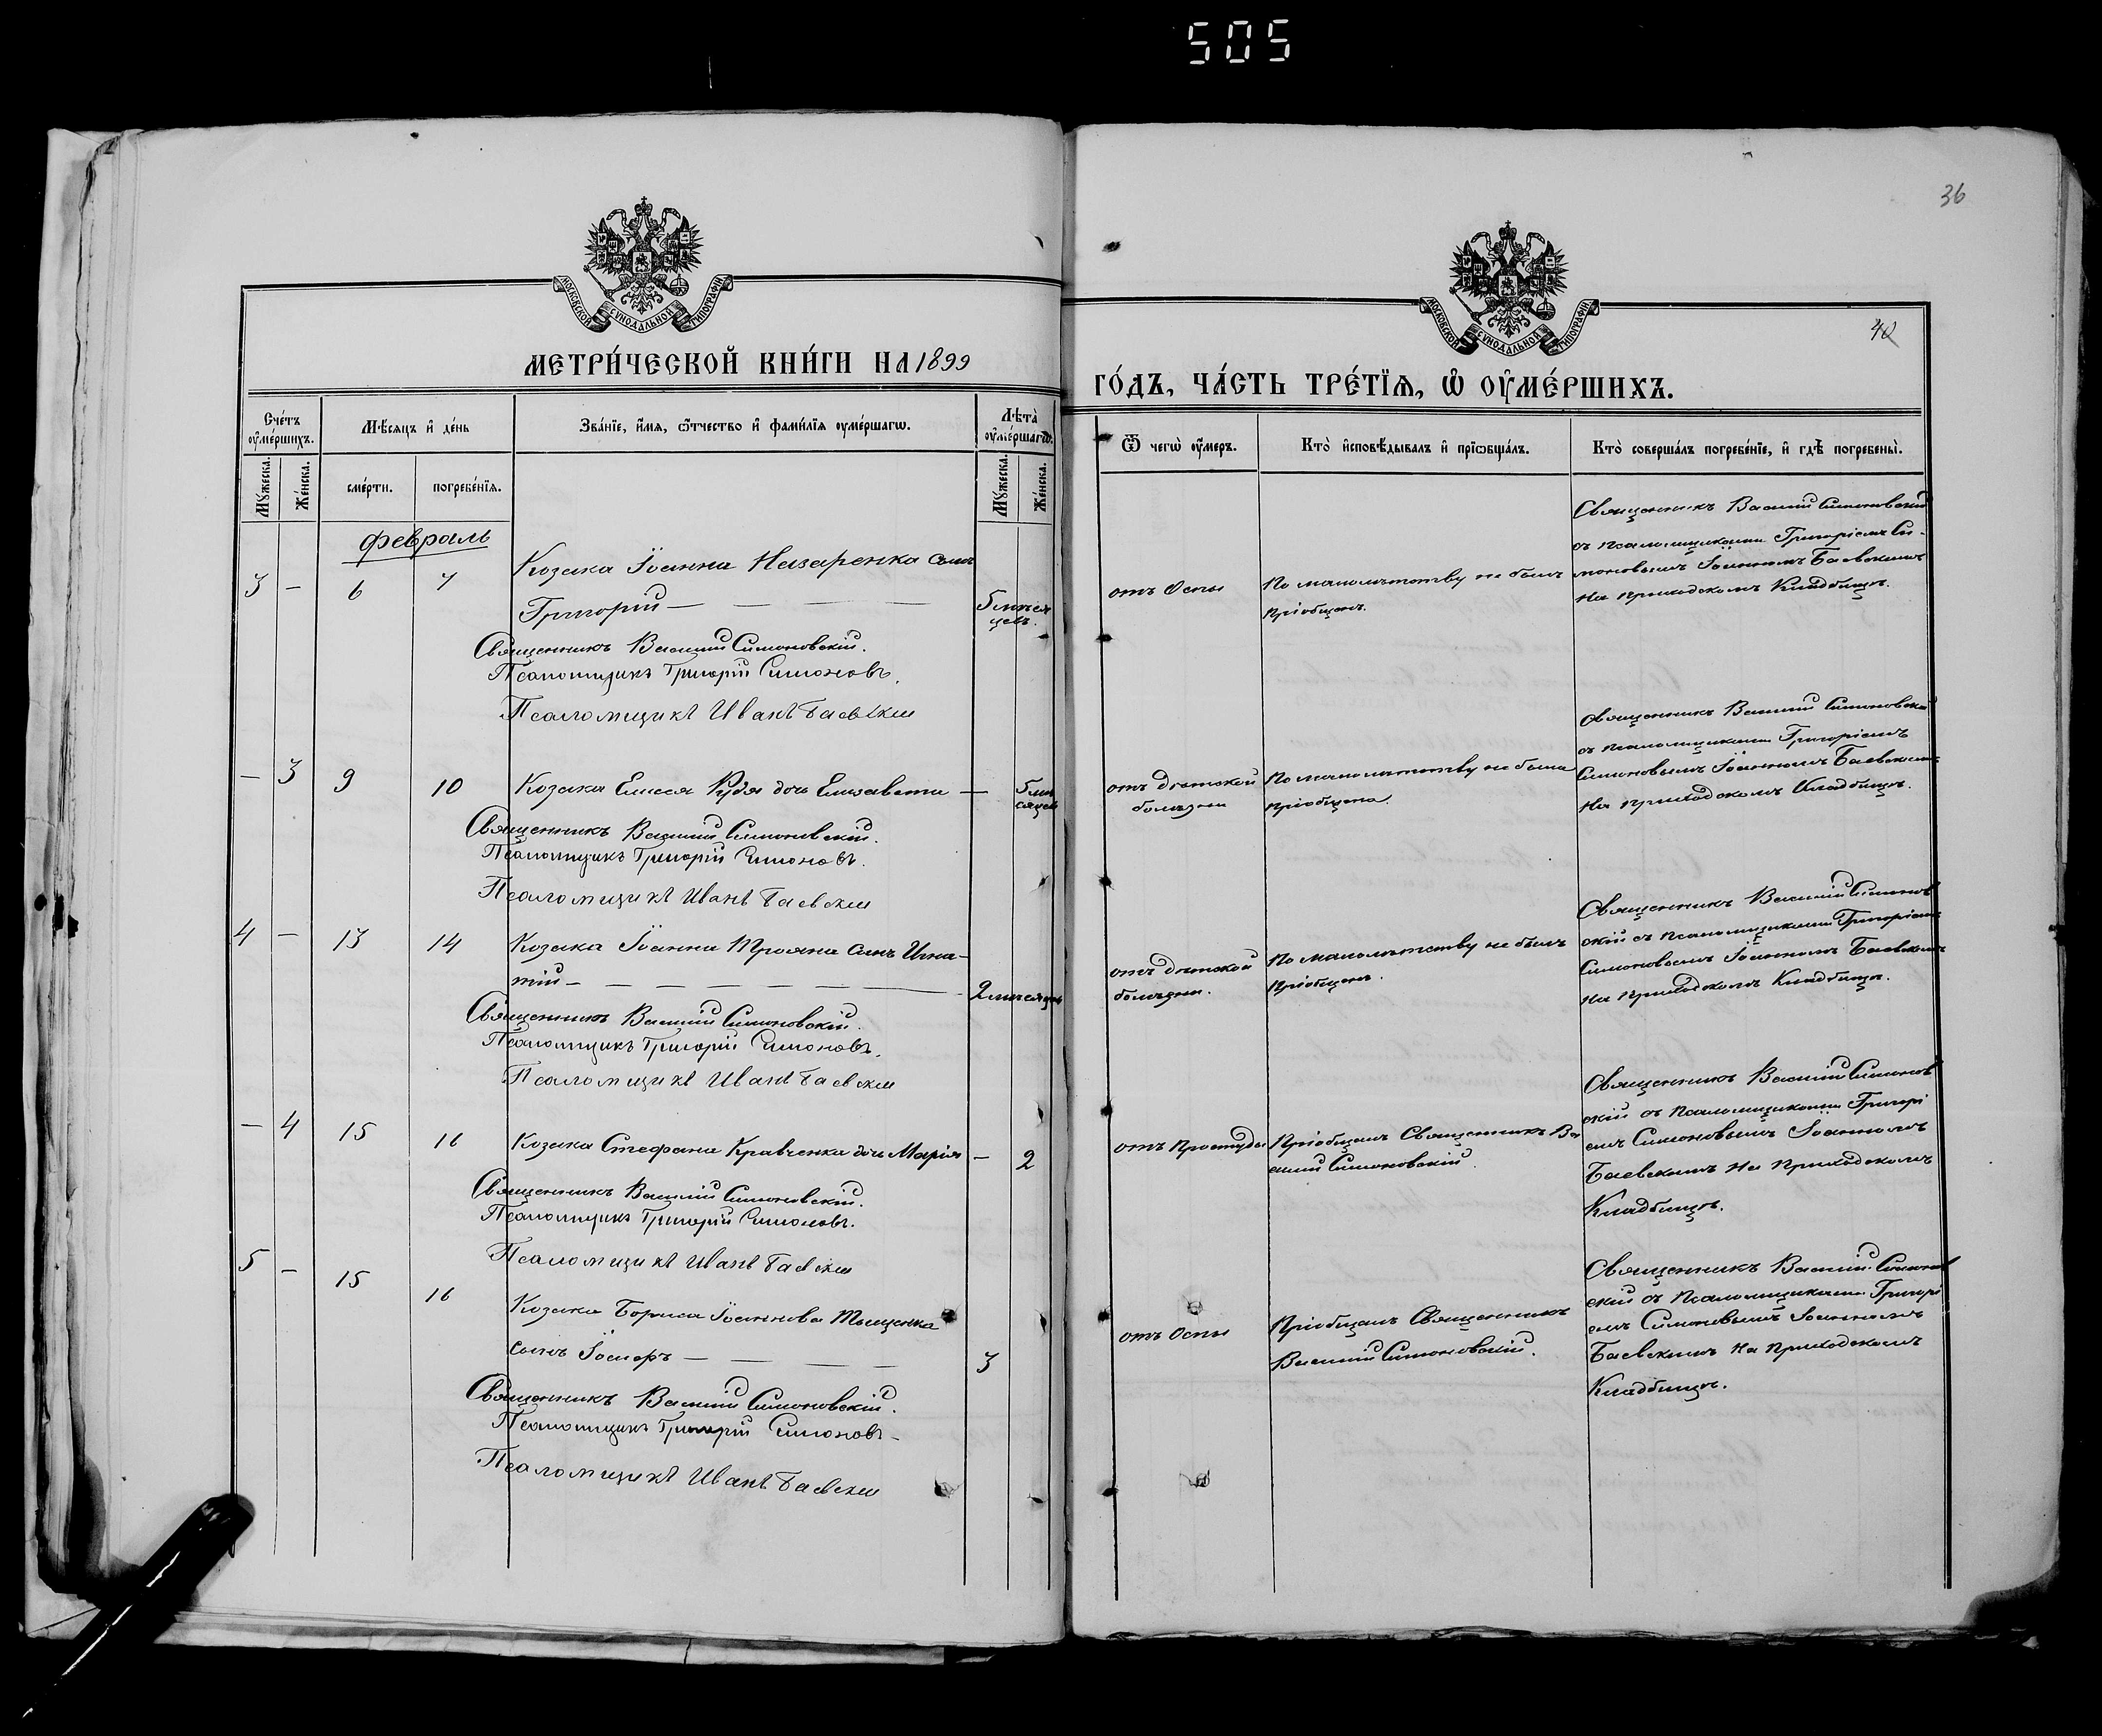 505
36
МОСКОВСКОЙ СУНОДАЛЬНОЙ ТИПОГРАФІИ.
МОСКОВСКОЙ СУНОДАЛЬНОЙ ТИПОГРАФІИ.
40
МЕТРИ́ЧЕСКОЙ КНИ́ГИ НА 1899
ГО́ДЪ, ЧА́СТЬ ТРЕ́ТЇѦ, Ѡ҆ ОУ҆МЕ́РШИХЪ.
Сче́тъ оу҆ме́ршихъ.
Мꙋ́жеска.
Же́нска.
Мѣ́сяцъ и҆ де́нь
сме́рти.
погребе́нїѧ.
Зва́нїе, и҆́мѧ, ѻ҆́тчество и҆ фами́лїѧ оу҆ме́ршагѡ.
Лѣ́та оу҆ме́ршагѡ.
Мꙋ́жеска.
Же́нска.
Ѿ чегѡ̀ оу҆́меръ.
Кто̀ и҆сповѣ́дывалъ и҆ прїѡбща́лъ.
Кто̀ соверша́лъ погребе́нїе, и҆ гдѣ̀ погребены̀.
февраль
3 — 6 7
Козака Іоанна Назаренка сынъ
Григорій — — — —
5 мѣся
цевъ.
Священникъ Василій Симоновскій.
Псаломщикъ Григорій Симоновъ.
Псаломщикъ Иванъ Баевскій
отъ Оспы
По малолѣтству не былъ
пріобщенъ.
Священникъ Василій Симоновскій
съ псаломщиками Григоріемъ Си-
моновымъ Іоанномъ Баевскимъ
на приходскомъ Кладбищѣ.
— 3 9 10
Козака Елисея Рудя дочь Елисавета —
5 мѣ
сяцевъ
Священникъ Василій Симоновскій.
Псаломщикъ Григорій Симоновъ.
Псаломщикъ Иванъ Баевскій
отъ дѣтской
болѣзни
По малолѣтству не была
пріобщена.
Священникъ Василій Симоновскій
съ псаломщиками Григоріемъ
Симоновымъ Іоанномъ Баевскимъ
на приходскомъ Кладбищѣ.
4 — 13 14
Козака Іоанна Трояна сынъ Игна-
тій — — — — — —
2 мѣсяцевъ
Священникъ Василій Симоновскій.
Псаломщикъ Григорій Симоновъ.
Псаломщикъ Иванъ Баевскій
отъ дѣтской
болѣзни.
По малолѣтству не былъ
пріобщенъ.
Священникъ Василій Симонов
скій съ псаломщиками Григоріемъ
Симоновымъ Іоанномъ Баевскимъ
на приходскомъ Кладбищѣ.
— 4 15 16
Козака Стефана Кравченка дочь Марія — 2
Священникъ Василій Симоновскій.
Псаломщикъ Григорій Симоновъ.
Псаломщикъ Иванъ Баевскій
отъ простуды
Пріобщалъ Священникъ Ва
силій Симоновскій.
Священникъ Василій Симонов
скій съ псаломщиками Григорі
емъ Симоновымъ Іоанномъ
Баевскимъ на приходскомъ
Кладбищѣ.
5 — 15 16
Козака Бориса Іоаннова Тыщенка
сынъ Іосифъ — — — —
3
Священникъ Василій Симоновскій.
Псаломщикъ Григорій Симоновъ
Псаломщикъ Иванъ Баевскій
отъ Оспы
Пріобщалъ Священникъ
Василій Симоновскій.
Священникъ Василій Симонов
скій съ псаломщиками Григорі
емъ Симоновымъ Іоанномъ
Баевскимъ на приходскомъ
Кладбищѣ.